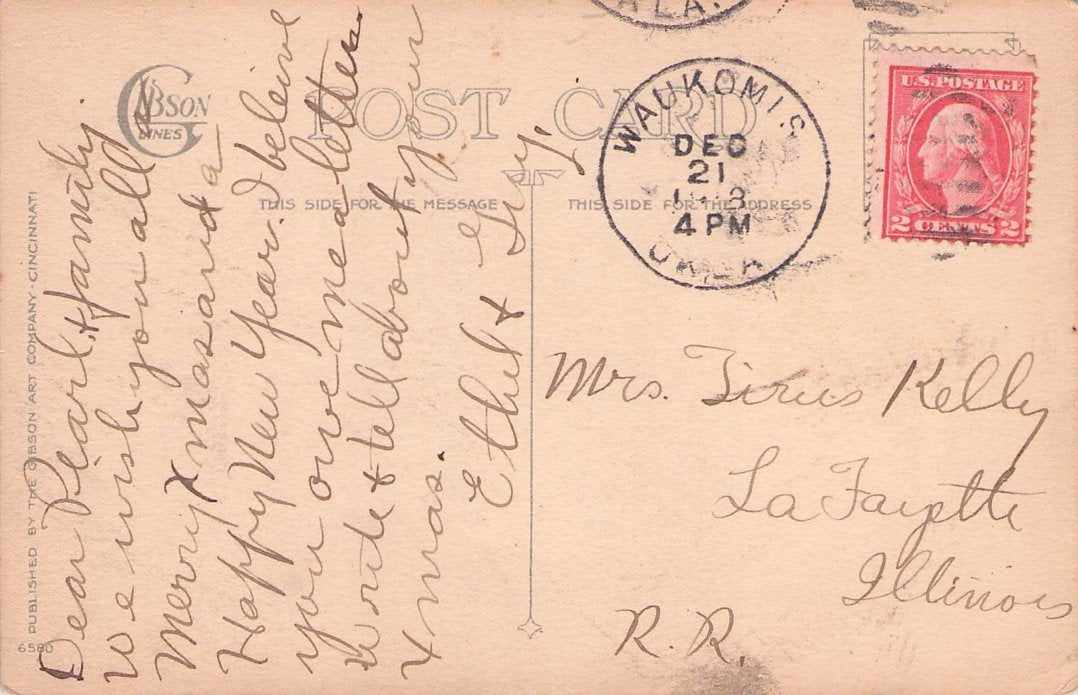 GIBSON
LINES
POST CARD
THIS SIDE FOR THE MESSAGE
THIS SIDE FOR THE ADDRESS
PUBLISHED BY THE GIBSON ART COMPANY · CINCINNATI
6580
Dear Pearl & family
We wish you all a
Merry Xmas and a
Happy New Year. I beleive
you owe me a letter
write & tell about your
Xmas.
Ethel & Guy.
LA.
WAUKOMIS
DEC
21
4 PM
OKLA
U.S. POSTAGE
2 CENTS 2
Mrs. Tirus Kelly
LaFayette
Illinois
R.R.